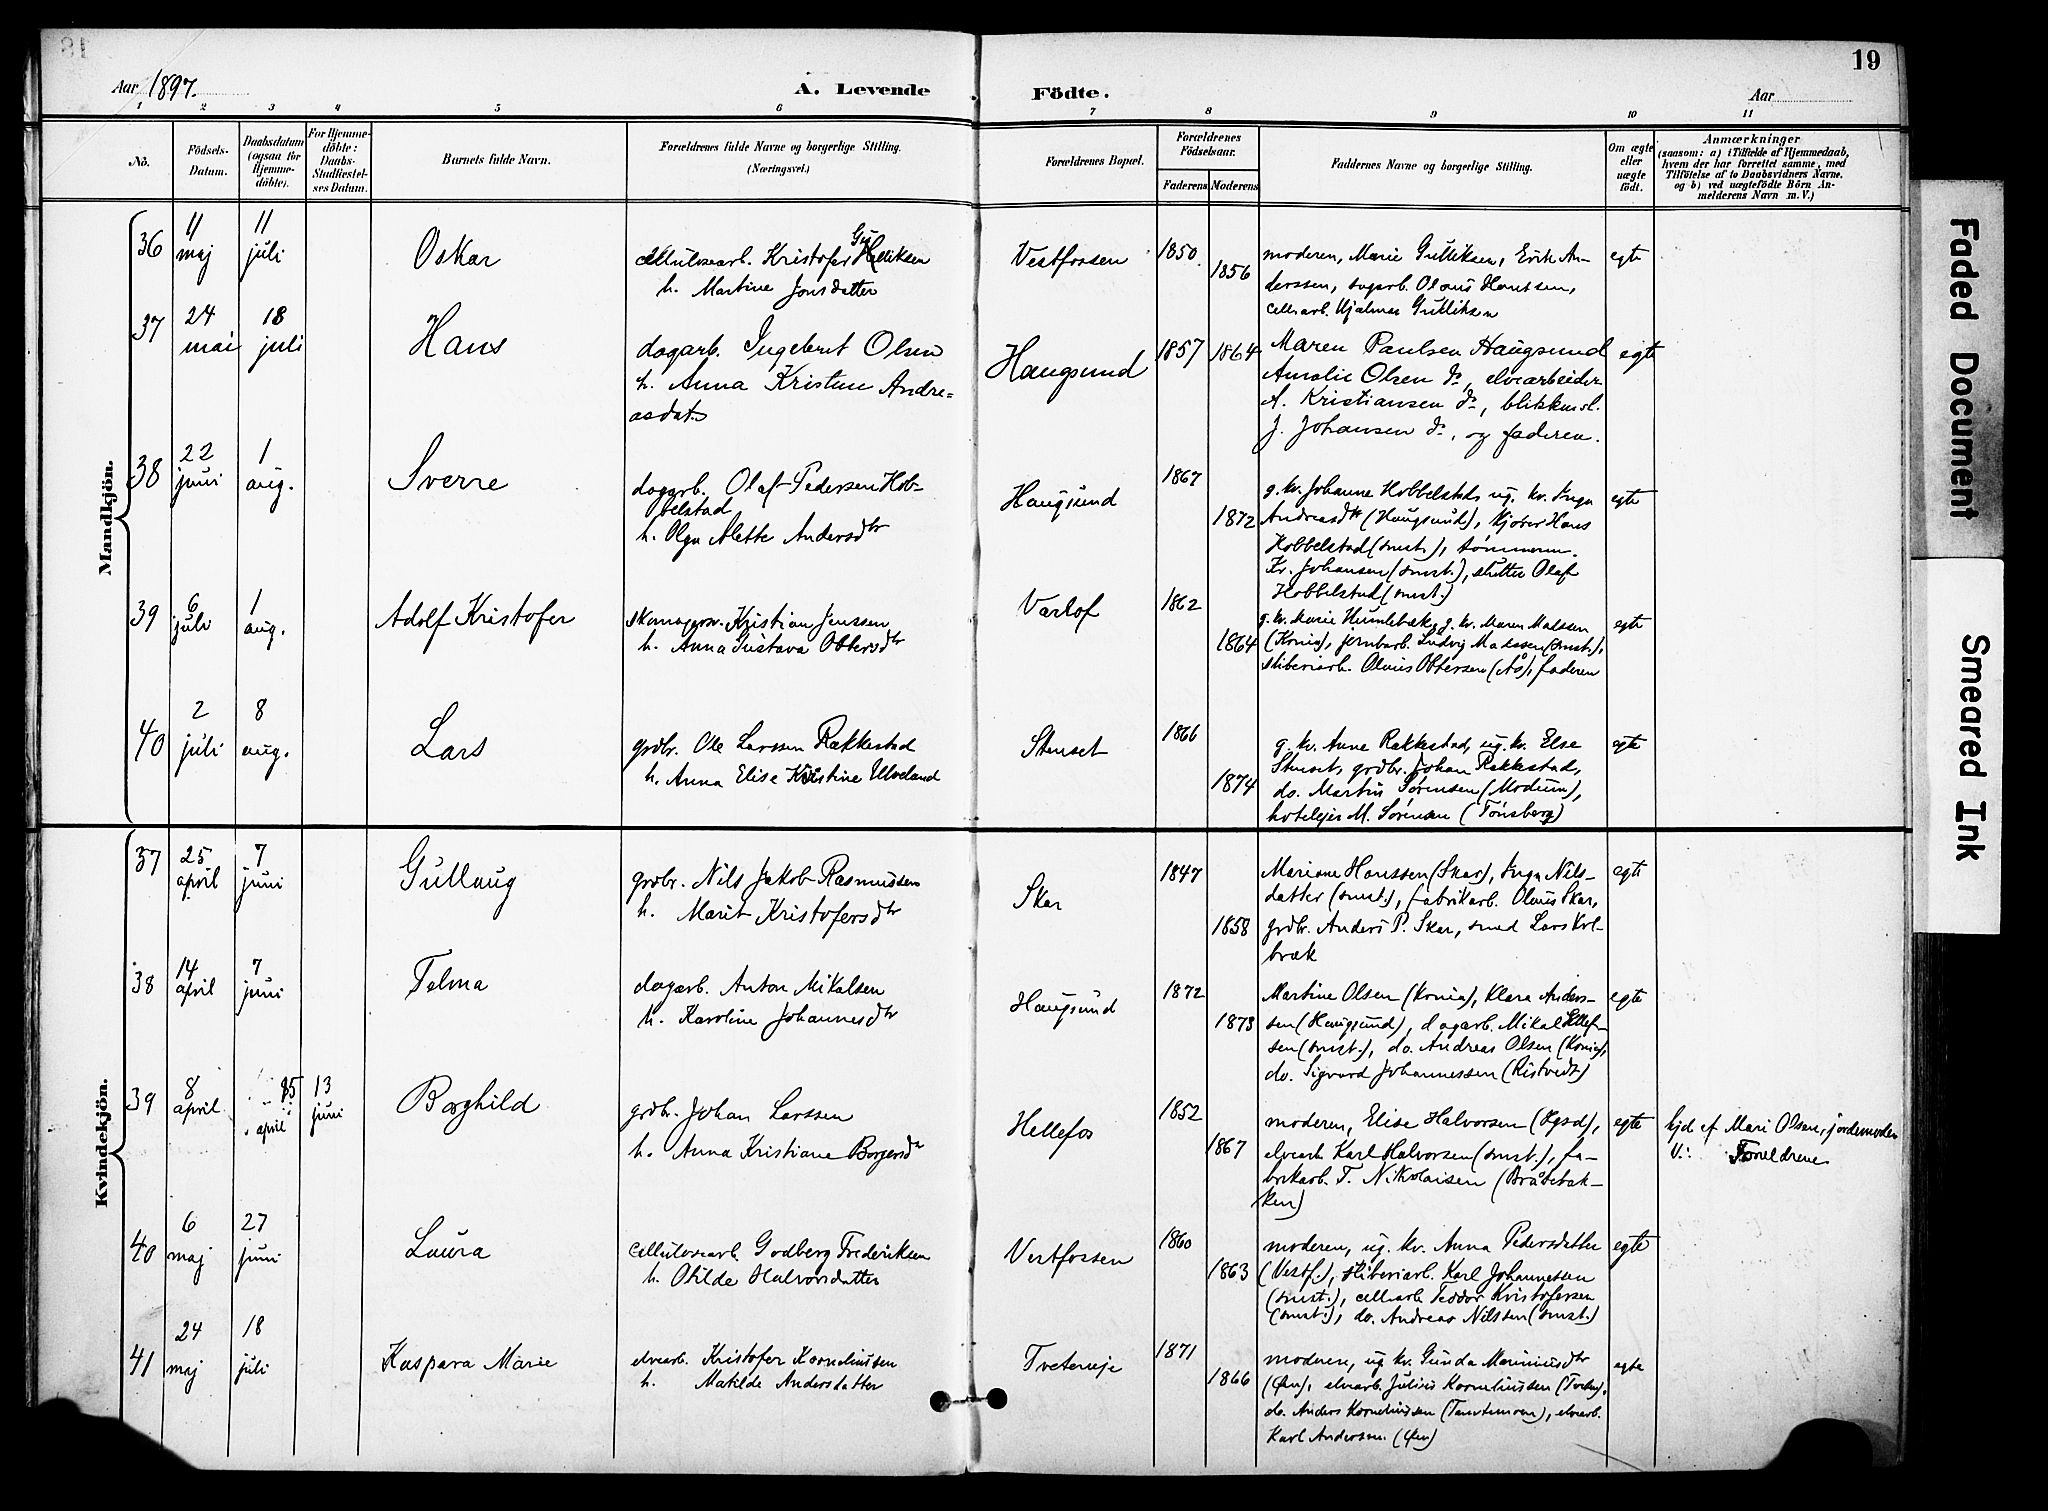 Aar 1897.
A. Levende
Födte.
Aar
19
1 2 3 4 5 6 7 8 9 10 11
No.
Födsels-
Datum.
Daabsdatum
(ogsaa for
Hjemme-
döbte).
For Hjemme-
döbte:
Daabs-
Stadfæstel-
ses Datum.
Barnets fulde Navn.
Forældrenes fulde Navne og borgerlige Stilling.
(Næringsvei.)
Forældrenes Bopæl.
Forældrenes
Födselsaar.
Faderens
Moderens
Faddernes Navne og borgerlige Stilling.
Om ægte
eller
uægte
födt.
Anmærkninger
(saasom: a) i Tilfælde af Hjemmedaab,
hvem der har forrettet samme, med
Tilföielse af to Daabsvidners Navne,
og b) ved uægtefödte Börn An-
melderens Navn m. V.)
Mandkjön.
36
11
maj
11
juli
Oskar
cellulosearb. Kristofer Gulliksen
h. Martine Jonsdatter
Vestfossen
1850
1856
moderen, Marie Gulliksen, Erik An-
derssen, sagarb. Olaus Hanssen,
cellarb. Hjalmar Gulliksen
egte
37
24
mai
18
juli
Hans
dagarb. Ingebret Olsen
h. Anna Kristine Andre=
asdat.
Haugsund
1857
1864
Maren Paulsen Haugsund
Amalie Olsen do, elvearbeider
A. Kristiansen do, blikkensl.
J. Johansen do, og faderen.
egte
38
22
juni
1
aug.
Sverre
dagarb. Olaf Pedersen Hob-
belstad
h. Olga Alette Andersdtr
Haugsund
1867
1872
g. kv. Johanne Hobbelstad, ug. kv. Inga
Andreasdtr (Haugsund), kjører Hans
Hobbelstad (smst.), tømmerm.
Kr. Johansen (smst.), Olaf
Hobbelstad (smst.)
egte
39
6
juli
1
aug.
Adolf Kristofer
skomagersv. Kristian Jenssen
h. Anna Gustava Ottersdtr
Varlof
1862
1864
g. kv. Marie Humlebæk, g. kv. Maren Madssen
(Konia), jernbarb. Ludvig Madssen (smst.),
sliberiarb. Olaus Ottersen (Ås), faderen
egte
40
2
juli
8
aug.
Lars
grdbr. Ole Larssen Rakkestad
h. Anna Elise Kristine Ulveland
Stenset
1866
1874
g. kv. Anne Rakkestad, ug. kv. Else
Stenset, grdbr. Johan Rakkestad,
do. Martin Sørensen (Modum),
hotelejer M. Sørensen (Tønsberg)
egte
Kvindekjön.
37
25
april
7
juni
Gullaug
grdbr. Nils Jakob Rasmussen
h. Marit Kristofersdtr
Skar
1847
1858
Mariane Hanssen (Skar), Inga Nils-
datter (smst.), fabrikarb. Olaus Skar,
grdbr. Anders P. Skar, smed Lars Kol-
bræk
egte
38
14
april
7
juni
Telma
dagarb. Anton Mikalsen
h. Karoline Johannesdtr
Haugsund
1872
1873
Martine Olsen (Konia), Klara Anders-
sen (Haugsund), dagarb. Mikal Ellef-
sen (smst.), do. Andreas Olsen (Konia),
do. Sigvard Johannessen (Ristvedt)
egte
39
8
april
april
13
juni
Borghild
grdbr. Johan Larssen
h. Anna Kristiane Borgersdtr
Hellefos
1852
1867
moderen, Elise Halvorsen (Hgsd),
elvearb. Karl Halvorsen (smst.), fa-
brikarb. T. Nikolaisen (Bråtebak-
ken)
egte
hjd af Mari Olsen, jordemoder
V.: Foreldrene
40
6
maj
27
juni
Laura
cellulosearb. Godberg Frederiksen
h. Otilde Halvorsdatter
Vestfossen
1860
1863
moderen, ug. kv. Anna Pedersdatter
(Vestf.), sliberiarb. Karl Johannessen
(smst.), cellearb. Teodor Kristofersen
(smst.), do. Andreas Nilssen (smst.)
egte
41
24
maj
18
juli
Kaspara Marie
elvearb. Kristofer Korneliussen
h. Matilde Andersdatter
Tvetereje
1871
1866
moderen, ug. kv. Gunda Mariniusdtr
(Øen), elvearb. Julius Korneliussen (Tveten),
do. Anders Korneliussen, elvearb.
Karl Andersen (Øen)
egte
Faded Document
Smeared Ink